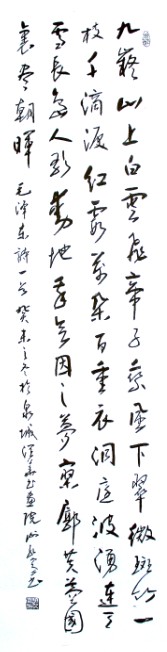 九嶷山上白雲飛帝子乘風下翠微斑竹一
枝千滴淚紅霞萬朵百重衣洞庭波湧連天
雪長島人歌動地詩我欲因之夢寥廓芙蓉國
裏盡朝暉
毛澤東詩一首癸未之冬於泉城書畫院